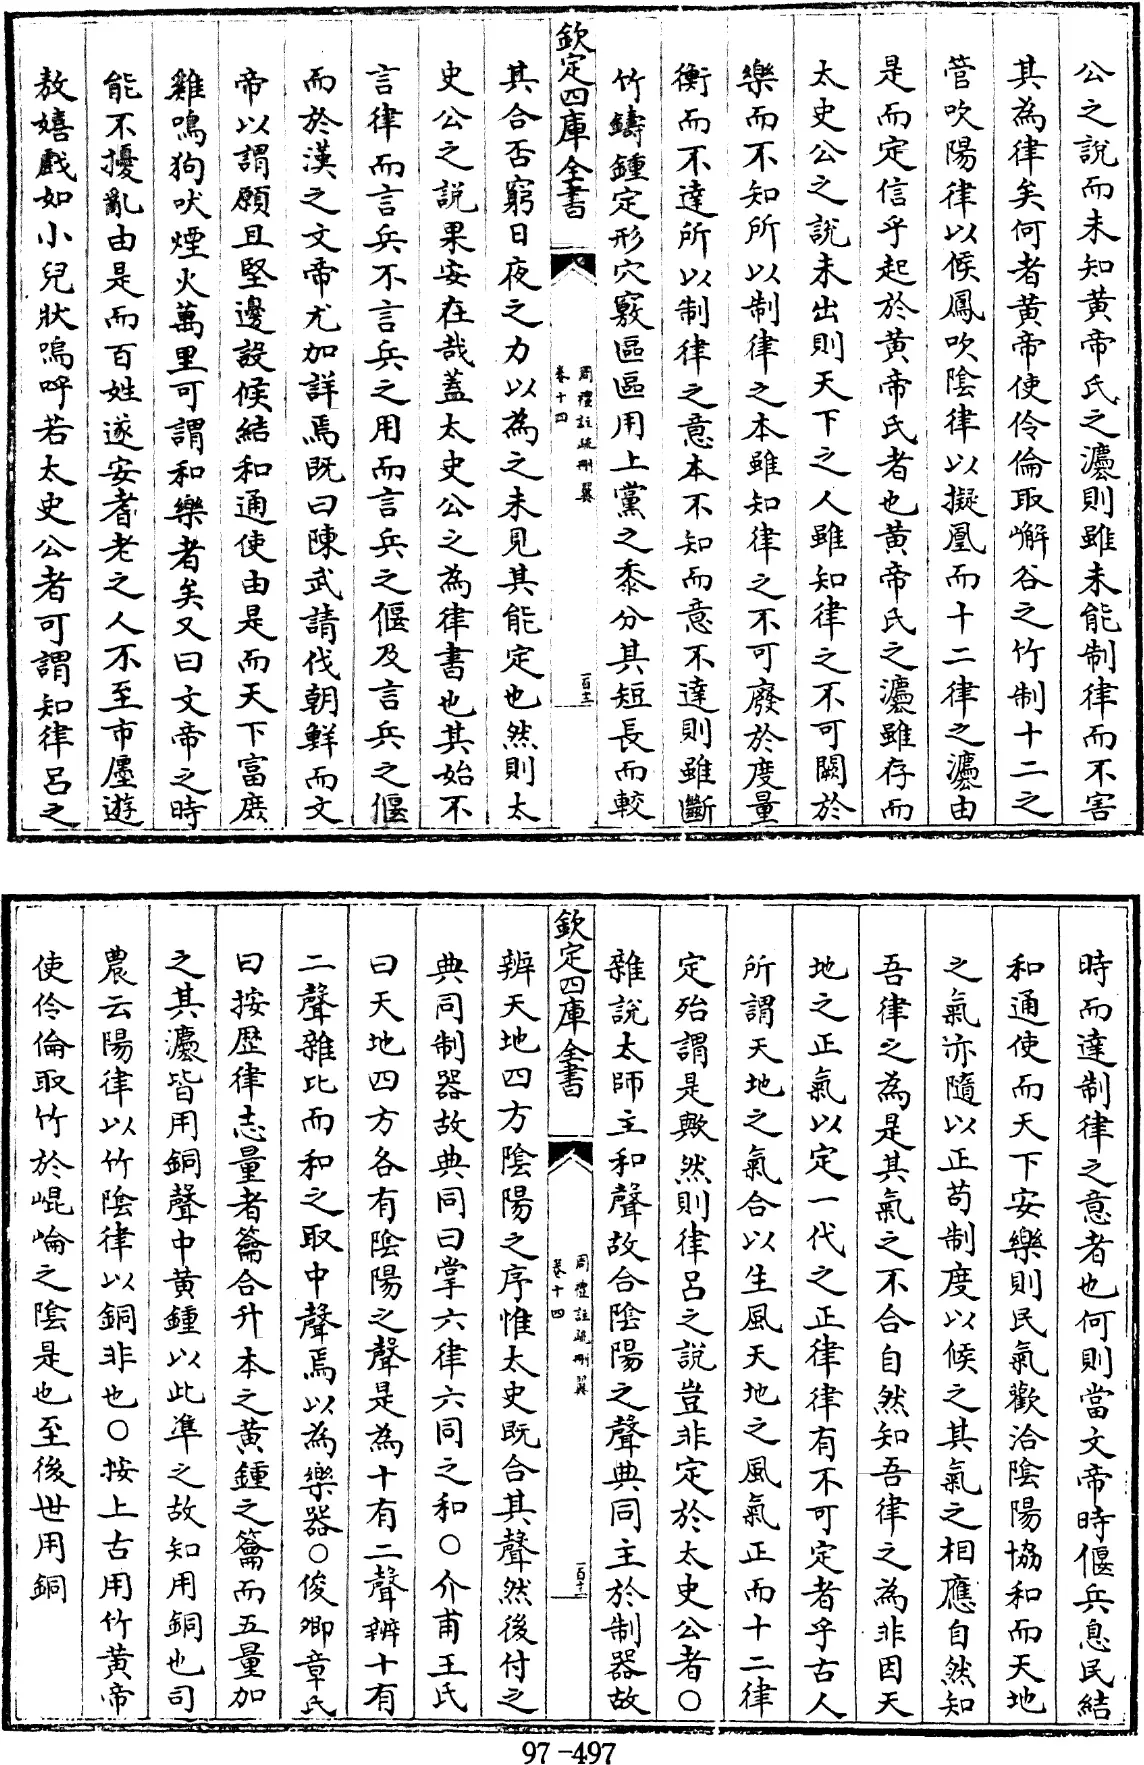 公之說而未知黃帝氏之灋則雖未能制律而不害
其為律矣何者黃帝使伶倫取嶰谷之竹制十二之
管吹陽律以候鳳吹陰律以擬凰而十二律之灋由
是而定信乎起於黃帝氏者也黃帝氏之灋雖存而
太史公之說未出則天下之人雖知律之不可闕於
樂而不知所以制律之本雖知律之不可廢於度量
衡而不達所以制律之意本不知而意不達則雖斷
竹鑄鍾定形穴竅區區用上黨之黍分其短長而較
欽定四庫全書
周禮註疏刪翼
卷十四
其合否窮日夜之力以為之未見其能定也然則太
史公之說果安在哉蓋太史公之為律書也其始不
言律而言兵不言兵之用而言兵之偃及言兵之偃
而於漢之文帝尤加詳焉既曰陳武請伐朝鮮而文
帝以謂願且堅邊設候結和通使由是而天下富庶
雞鳴狗吠煙火萬里可謂和樂者矣又曰文帝之時
能不擾亂由是而百姓遂安耆老之人不至市廛遊
敖嬉戲如小兒狀嗚呼若太史公者可謂知律呂之
時而達制律之意者也何則當文帝時偃兵息民結
和通使而天下安樂則民氣歡洽陰陽協和而天地
之氣亦隨以正苟制度以候之其氣之相應自然知
吾律之為是其氣之不合自然知吾律之為非因天
地之正氣以定一代之正律律有不可定者乎古人
所謂天地之氣合以生風天地之風氣正而十二律
定殆謂是歟然則律呂之說豈非定於太史公者○
雜說太師主和聲故合陰陽之聲典同主於制器故
欽定四庫全書
周禮註疏刪翼
卷十四
辨天地四方陰陽之序惟太史既合其聲然後付之
典同制器故典同曰掌六律六同之和○介甫王氏
曰天地四方各有陰陽之聲是為十有二聲辨十有
二聲雜比而和之取中聲焉以為樂器○俊卿章氏
曰按歷律志量者籥合升本之黃鍾之籥而五量加
之其灋皆用銅聲中黃鍾以此準之故知用銅也司
農云陽律以竹陰律以銅非也○按上古用竹黃帝
使伶倫取竹於崐崘之陰是也至後世用銅
97-497